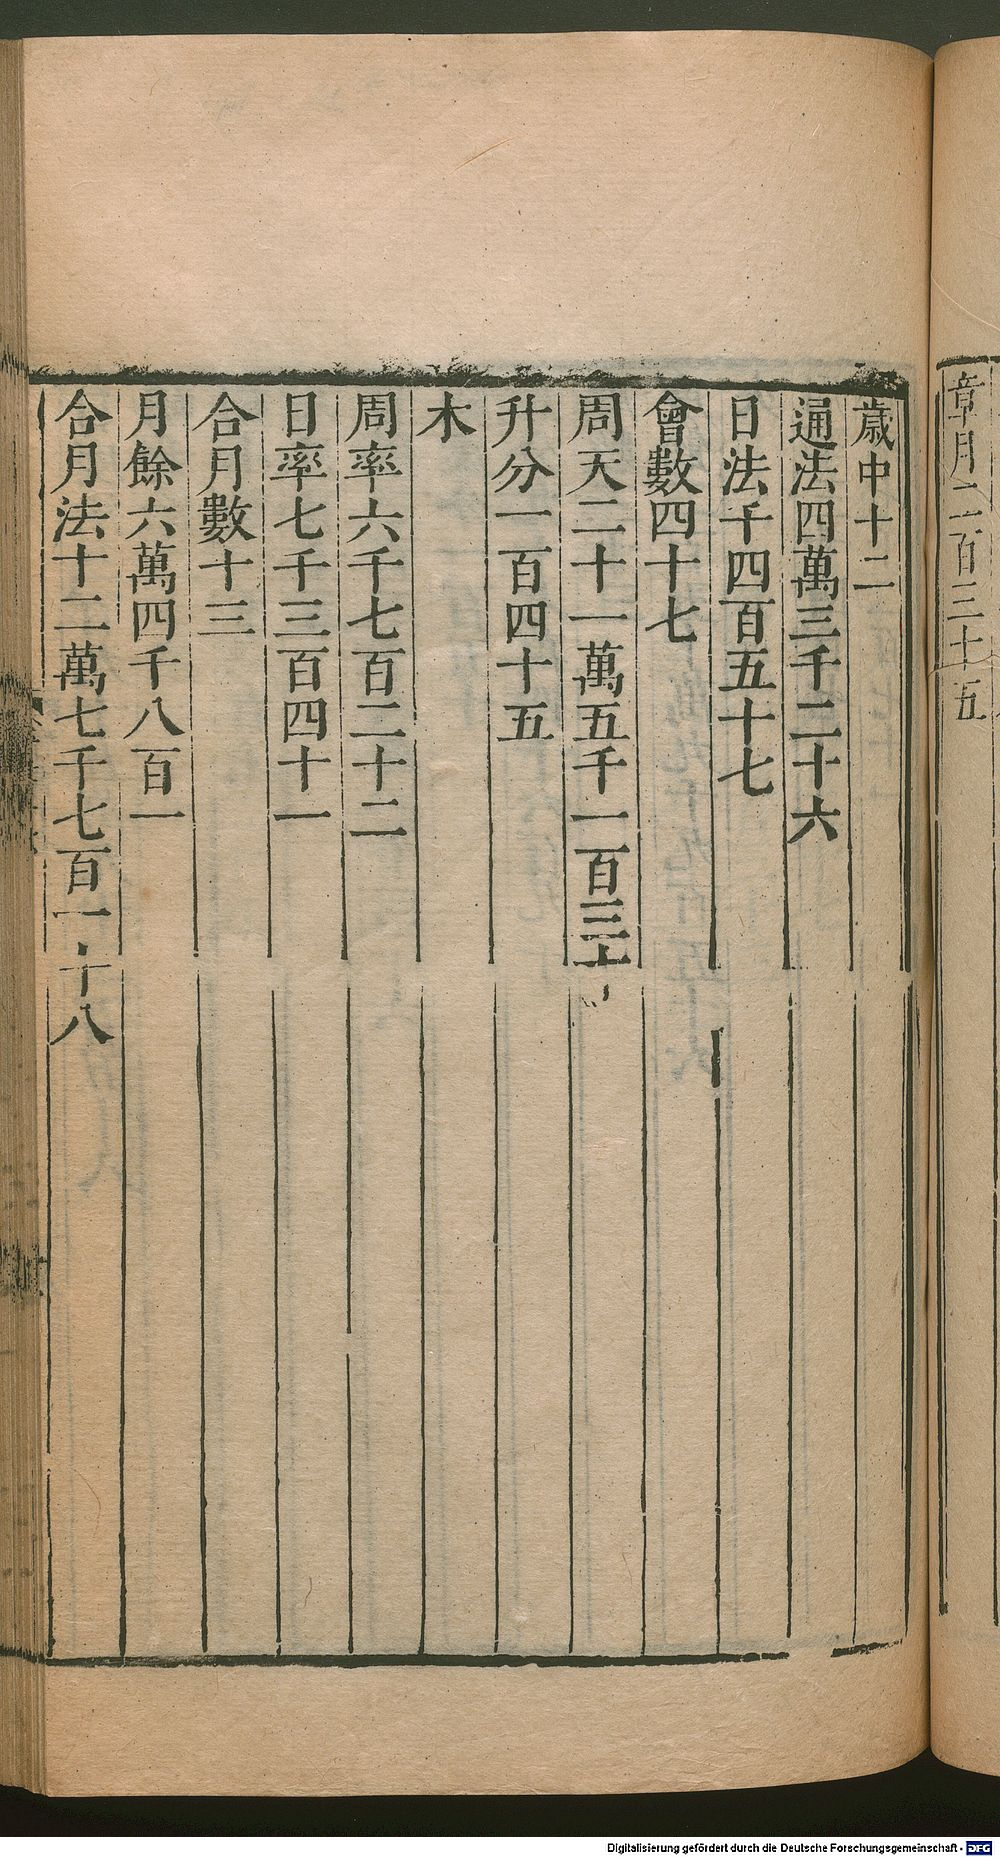 章月二百三十五
歲中十二
通法四萬三千二十六
日法千四百五十七
會數四十七
周天二十一萬五千一百三十
升分一百四十五
木
周率六千七百二十二
日率七千三百四十一
合月數十三
月餘六萬四千八百一
合月法十二萬七千七百一十八
Digitalisierung gefördert durch die Deutsche Forschungsgemeinschaft - DFG